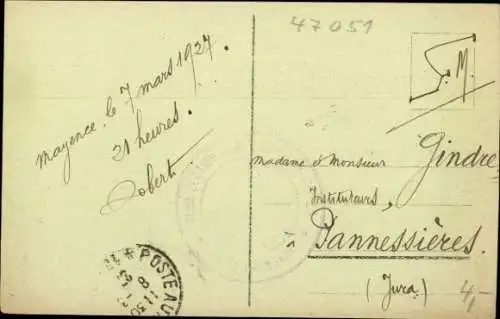 47051
F.M.
Mayence, le 7 mars 1927.
21 heures.
Robert
Madame et Monsieur Gindre
Instituteurs,
Pannessières.
(Jura)
4,-
* POSTE AUX